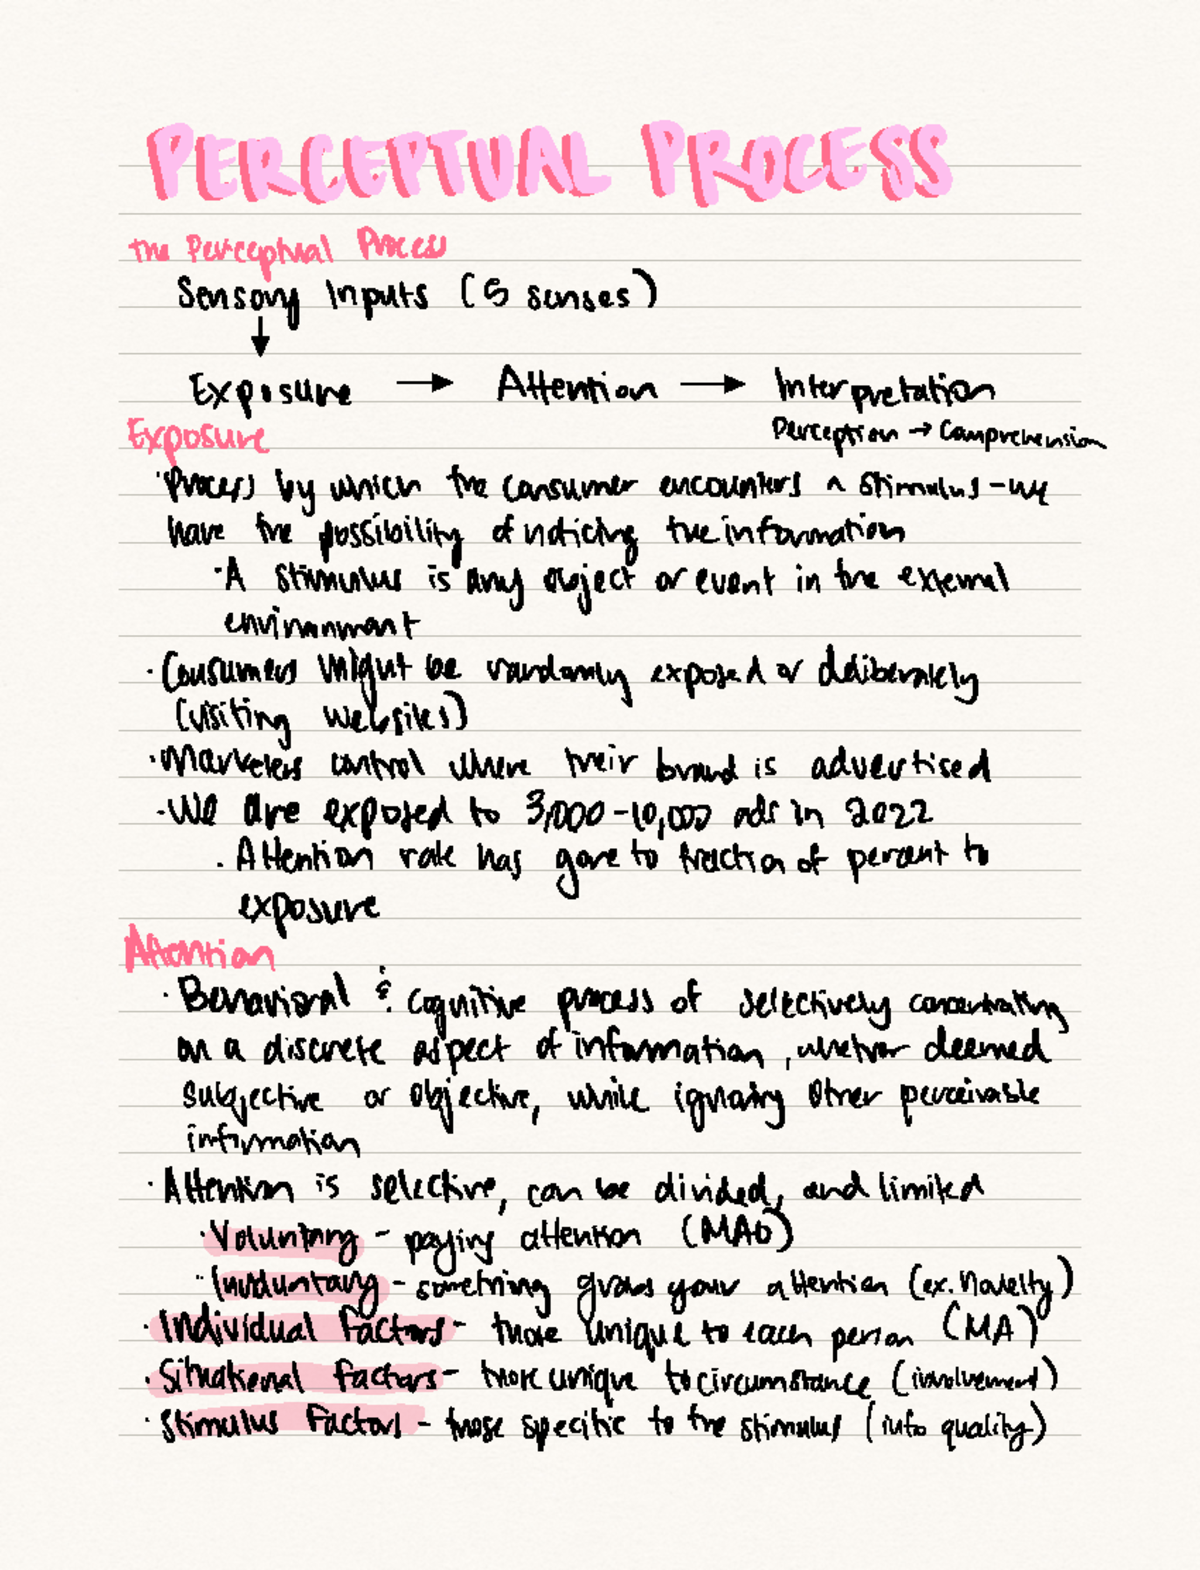 PERCEPTUAL PROCESS
The Perceptual Process
Sensory Inputs (5 senses)
↓
Exposure → Attention → Interpretation
Perception → Comprehension
Exposure
· Process by which the consumer encounters a stimulus - we
have the possibility of noticing the information
· A stimulus is any object or event in the external
environment
· Consumers might be randomly exposed or deliberately
(visiting websites)
· Marketers control where their brand is advertised
· We are exposed to 3,000-10,000 ads in 2022
· Attention rate has gone to fraction of percent to
exposure
Attention
· Behavioral & Cognitive process of selectively concentrating
on a discrete aspect of information, whether deemed
subjective or objective, while ignoring other perceivable
information
· Attention is selective, can be divided, and limited
· Voluntary - paying attention (MAO)
· Involuntary - something grabs your attention (ex. Novelty)
· Individual Factors - those unique to each person (MA)
· Situational Factors - those unique to circumstance (involvement)
· Stimulus Factors - those specific to the stimulus (info quality)